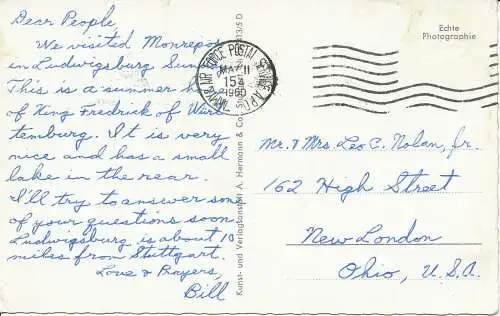 Dear People,
We visited Monrepos
in Ludwigsburg
This is a summer
of King Fredrick of Würt
temburg. It is very
nice and has a small
lake in the rear.
I'll try to answer some
of your questions soon.
Ludwigsburg is about 10
miles from Stuttgart.
Love & Prayers,
Bill
AIR FORCE POSTAL SERVICE
MAY 11
1960
A.P.O.
Kunst- und Verlagsanstalt A. Hermann & Co.
Echte
Photographie
Mr. & Mrs. Leo C. Nolan, Jr.
162 High Street
New London
Ohio, U.S.A.